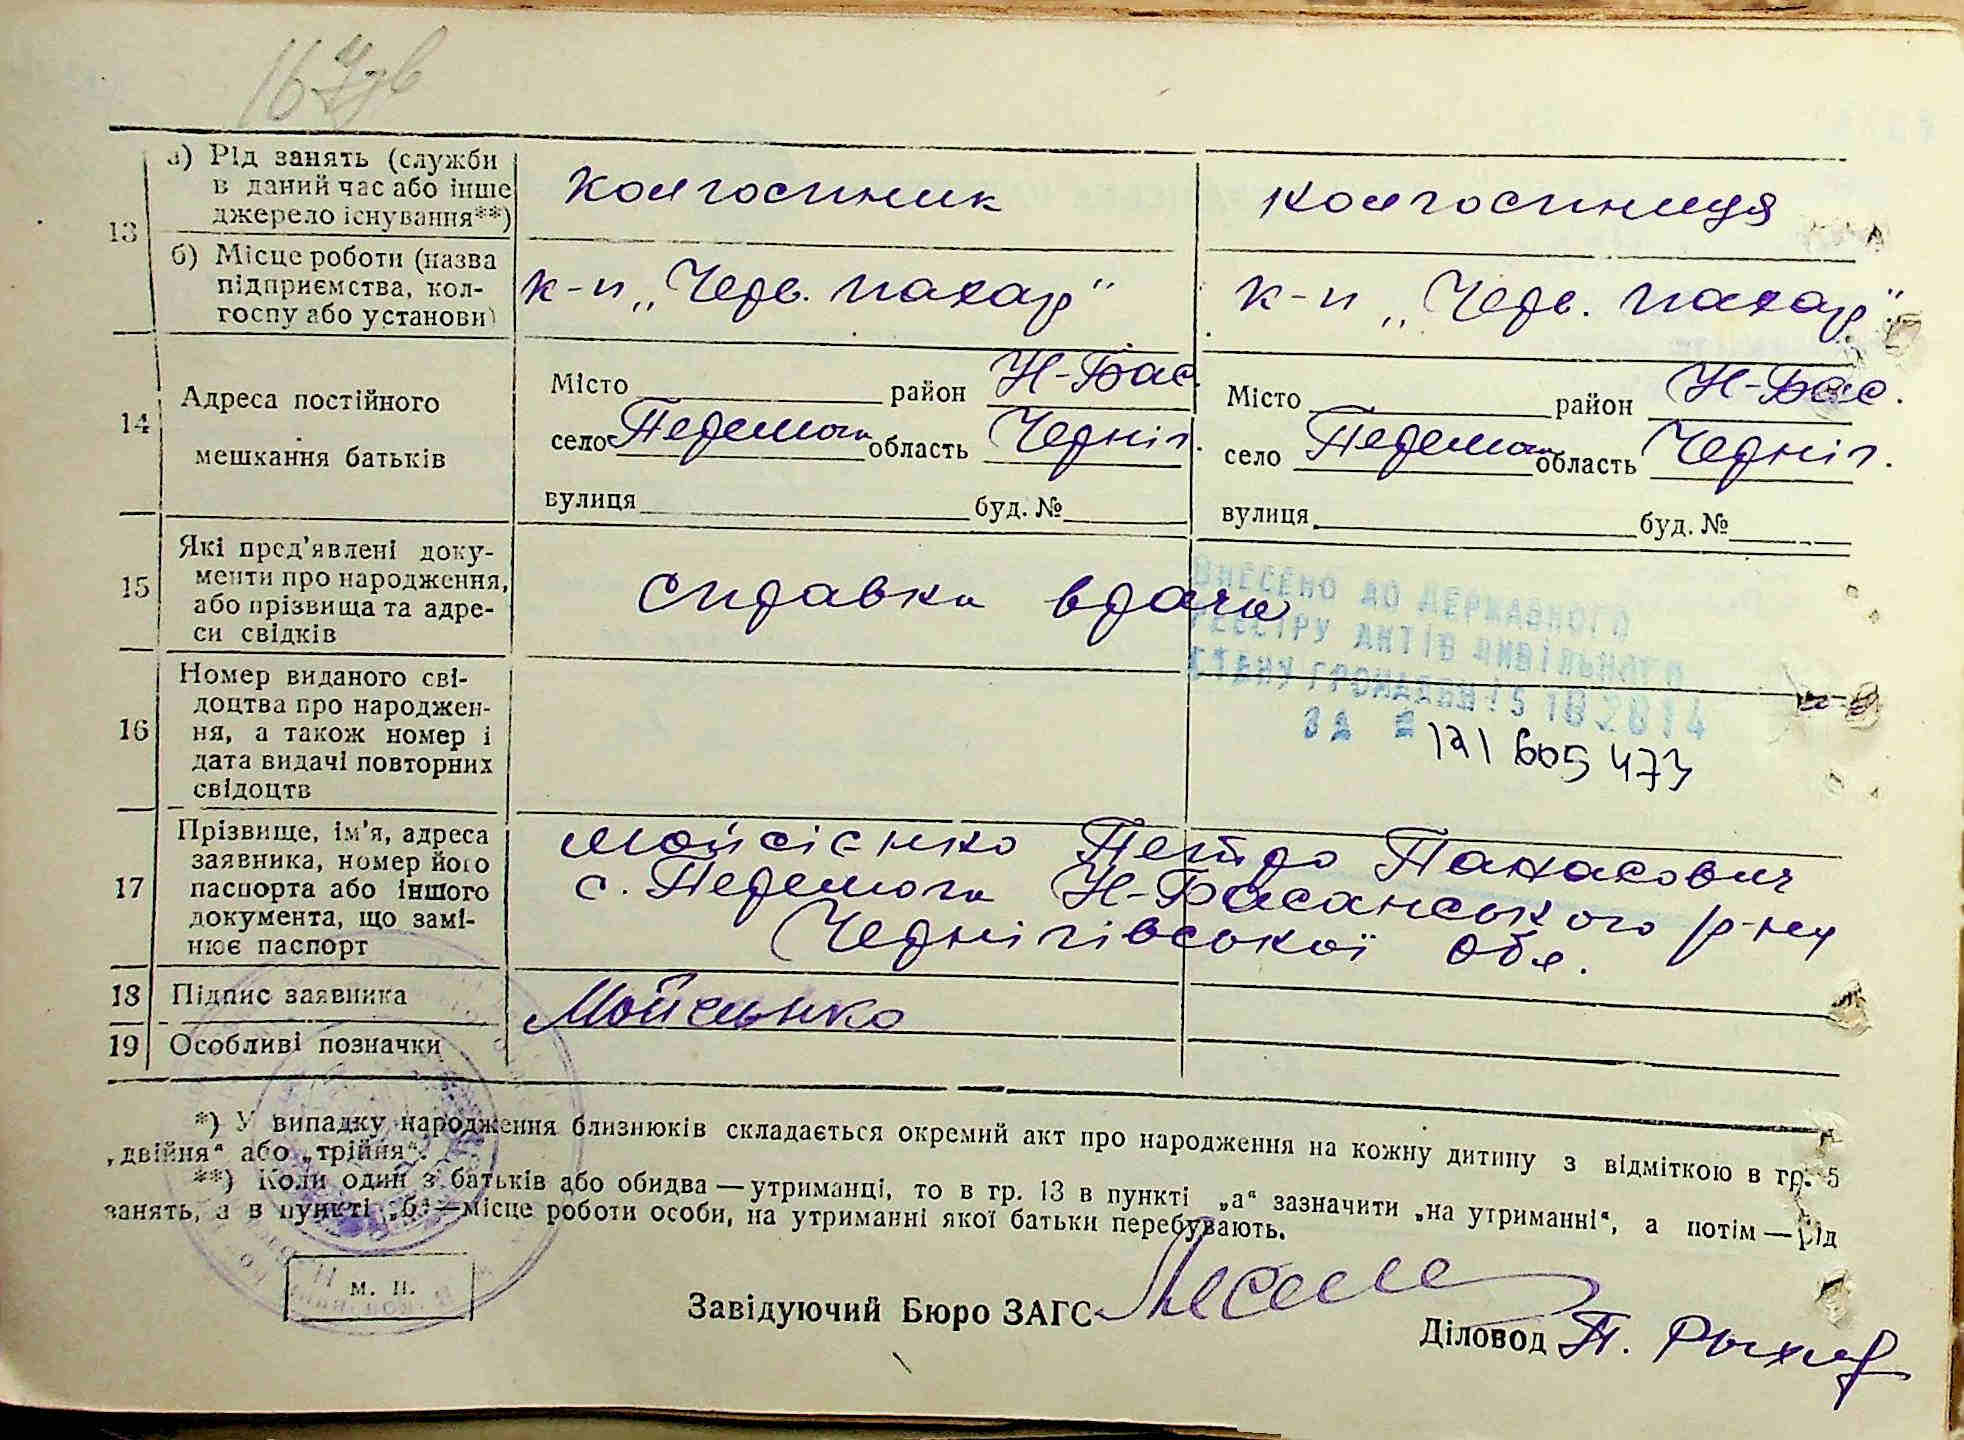 16
13
а) Рід занять (служби
в даний час або інше
джерело існування**)
Колгоспник
Колгоспниця
б) Місце роботи (назва
підприємства, кол-
госпу або установи)
к-п „Черв. пахар“
к-п „Черв. пахар“
14
Адреса постійного
мешкання батьків
Місто район Н-Бас.
село Перемога область Черніг.
вулиця буд. №
Місто район Н-Бас.
село Перемога область Черніг.
вулиця буд. №
15
Які пред’явлені доку-
менти про народження,
або прізвища та адре-
си свідків
справка врача
ВНЕСЕНО ДО ДЕРЖАВНОГО
РЕЄСТРУ АКТІВ ЦИВІЛЬНОГО
СТАНУ ГРОМАДЯН 15 10 2014
ЗА № 121 605 473
16
Номер виданого сві-
доцтва про народжен-
ня, а також номер і
дата видачі повторних
свідоцтв
17
Прізвище, ім’я, адреса
заявника, номер його
паспорта або іншого
документа, що замі-
нює паспорт
Мойсієнко Петро Панасович
с. Перемога Н-Басанського р-ну
Чернігівської обл.
18
Підпис заявника
Мойсиенко
19
Особливі позначки
*) У випадку народження близнюків складається окремий акт про народження на кожну дитину з відміткою в гр. 5
„двійня“ або „трійня“.
**) Коли один з батьків або обидва — утриманці, то в гр. 13 в пункті „а“ зазначити „на утриманні“, а потім — рід
занять, а в пункті „б“ — місце роботи особи, на утриманні якої батьки перебувають.
м. п.
Завідуючий Бюро ЗАГС
Діловод П.